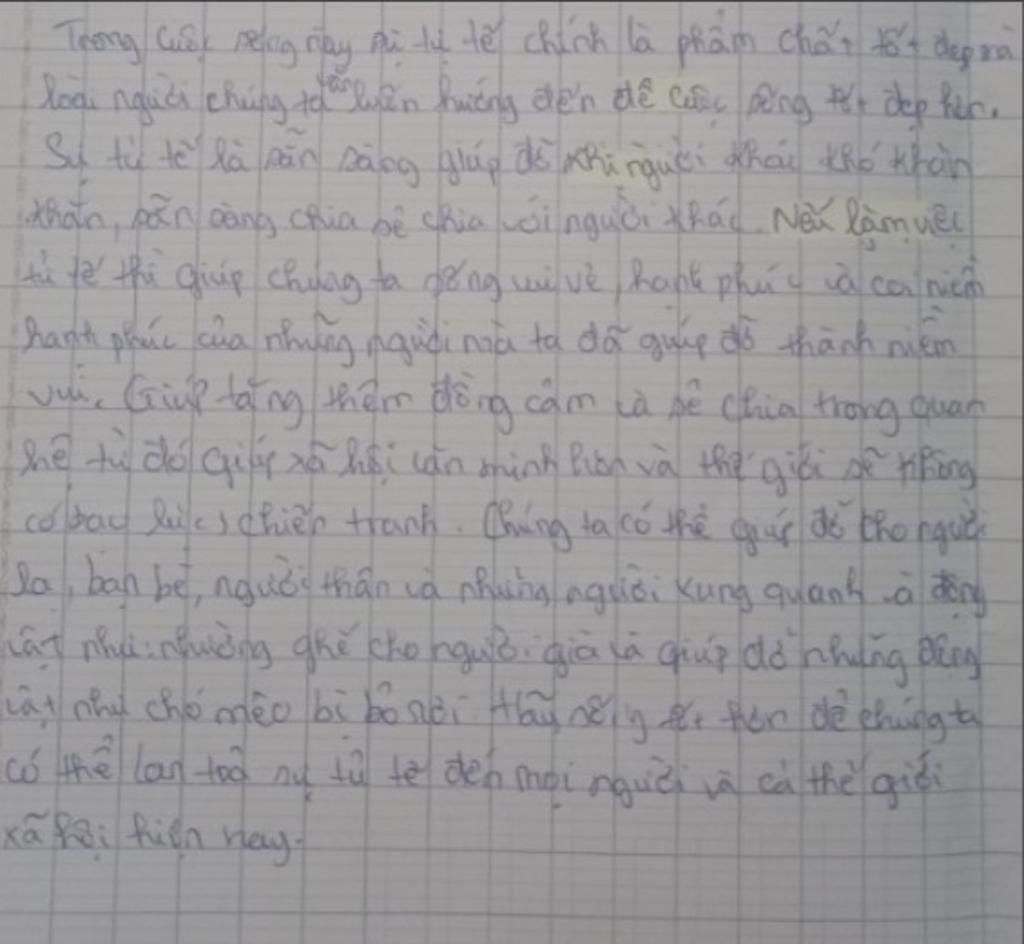 Trong cuộc sống này sự tử tế chính là phẩm chất tốt đẹp mà
loài người chúng ta vẫn luôn hướng đến để cuộc sống tốt đẹp hơn.
Sự tử tế là sẵn sàng giúp đỡ khi người khác khó khăn
khăn, sẵn sàng chia sẻ chia với người khác. Nếu làm việc
tử tế thì giúp chúng ta sống vui vẻ, hạnh phúc và coi niềm
hạnh phúc của những người mà ta đã giúp đỡ thành niềm
vui. Giúp tăng thêm đồng cảm và sẻ chia trong quan
hệ từ đó giúp xã hội văn minh hơn và thế giới sẽ không
có bạo lực, chiến tranh. Chúng ta có thể giúp đỡ cho người
lạ, bạn bè, người thân và những người xung quanh và động
vật như: nhường ghế cho người già và giúp đỡ những động
vật như chó mèo bị bỏ rơi. Hãy sống tốt hơn để chúng ta
có thể lan toả sự tử tế đến mọi người và cả thế giới
xã hội hiện nay.